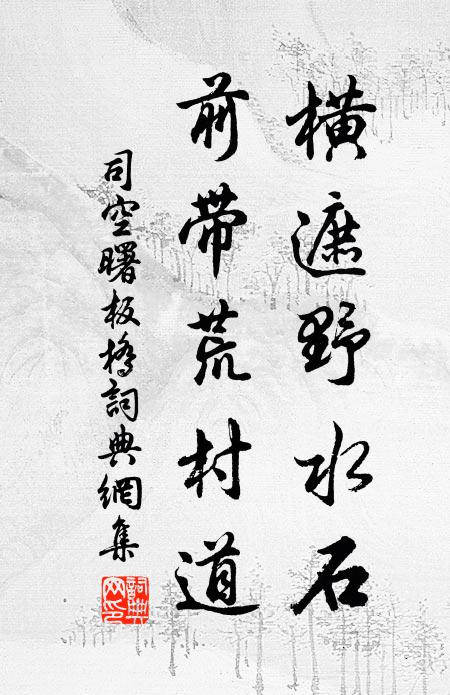 橫遮野水石
前帶荒村道
司空曙板橋詞典網集
詞典
网印